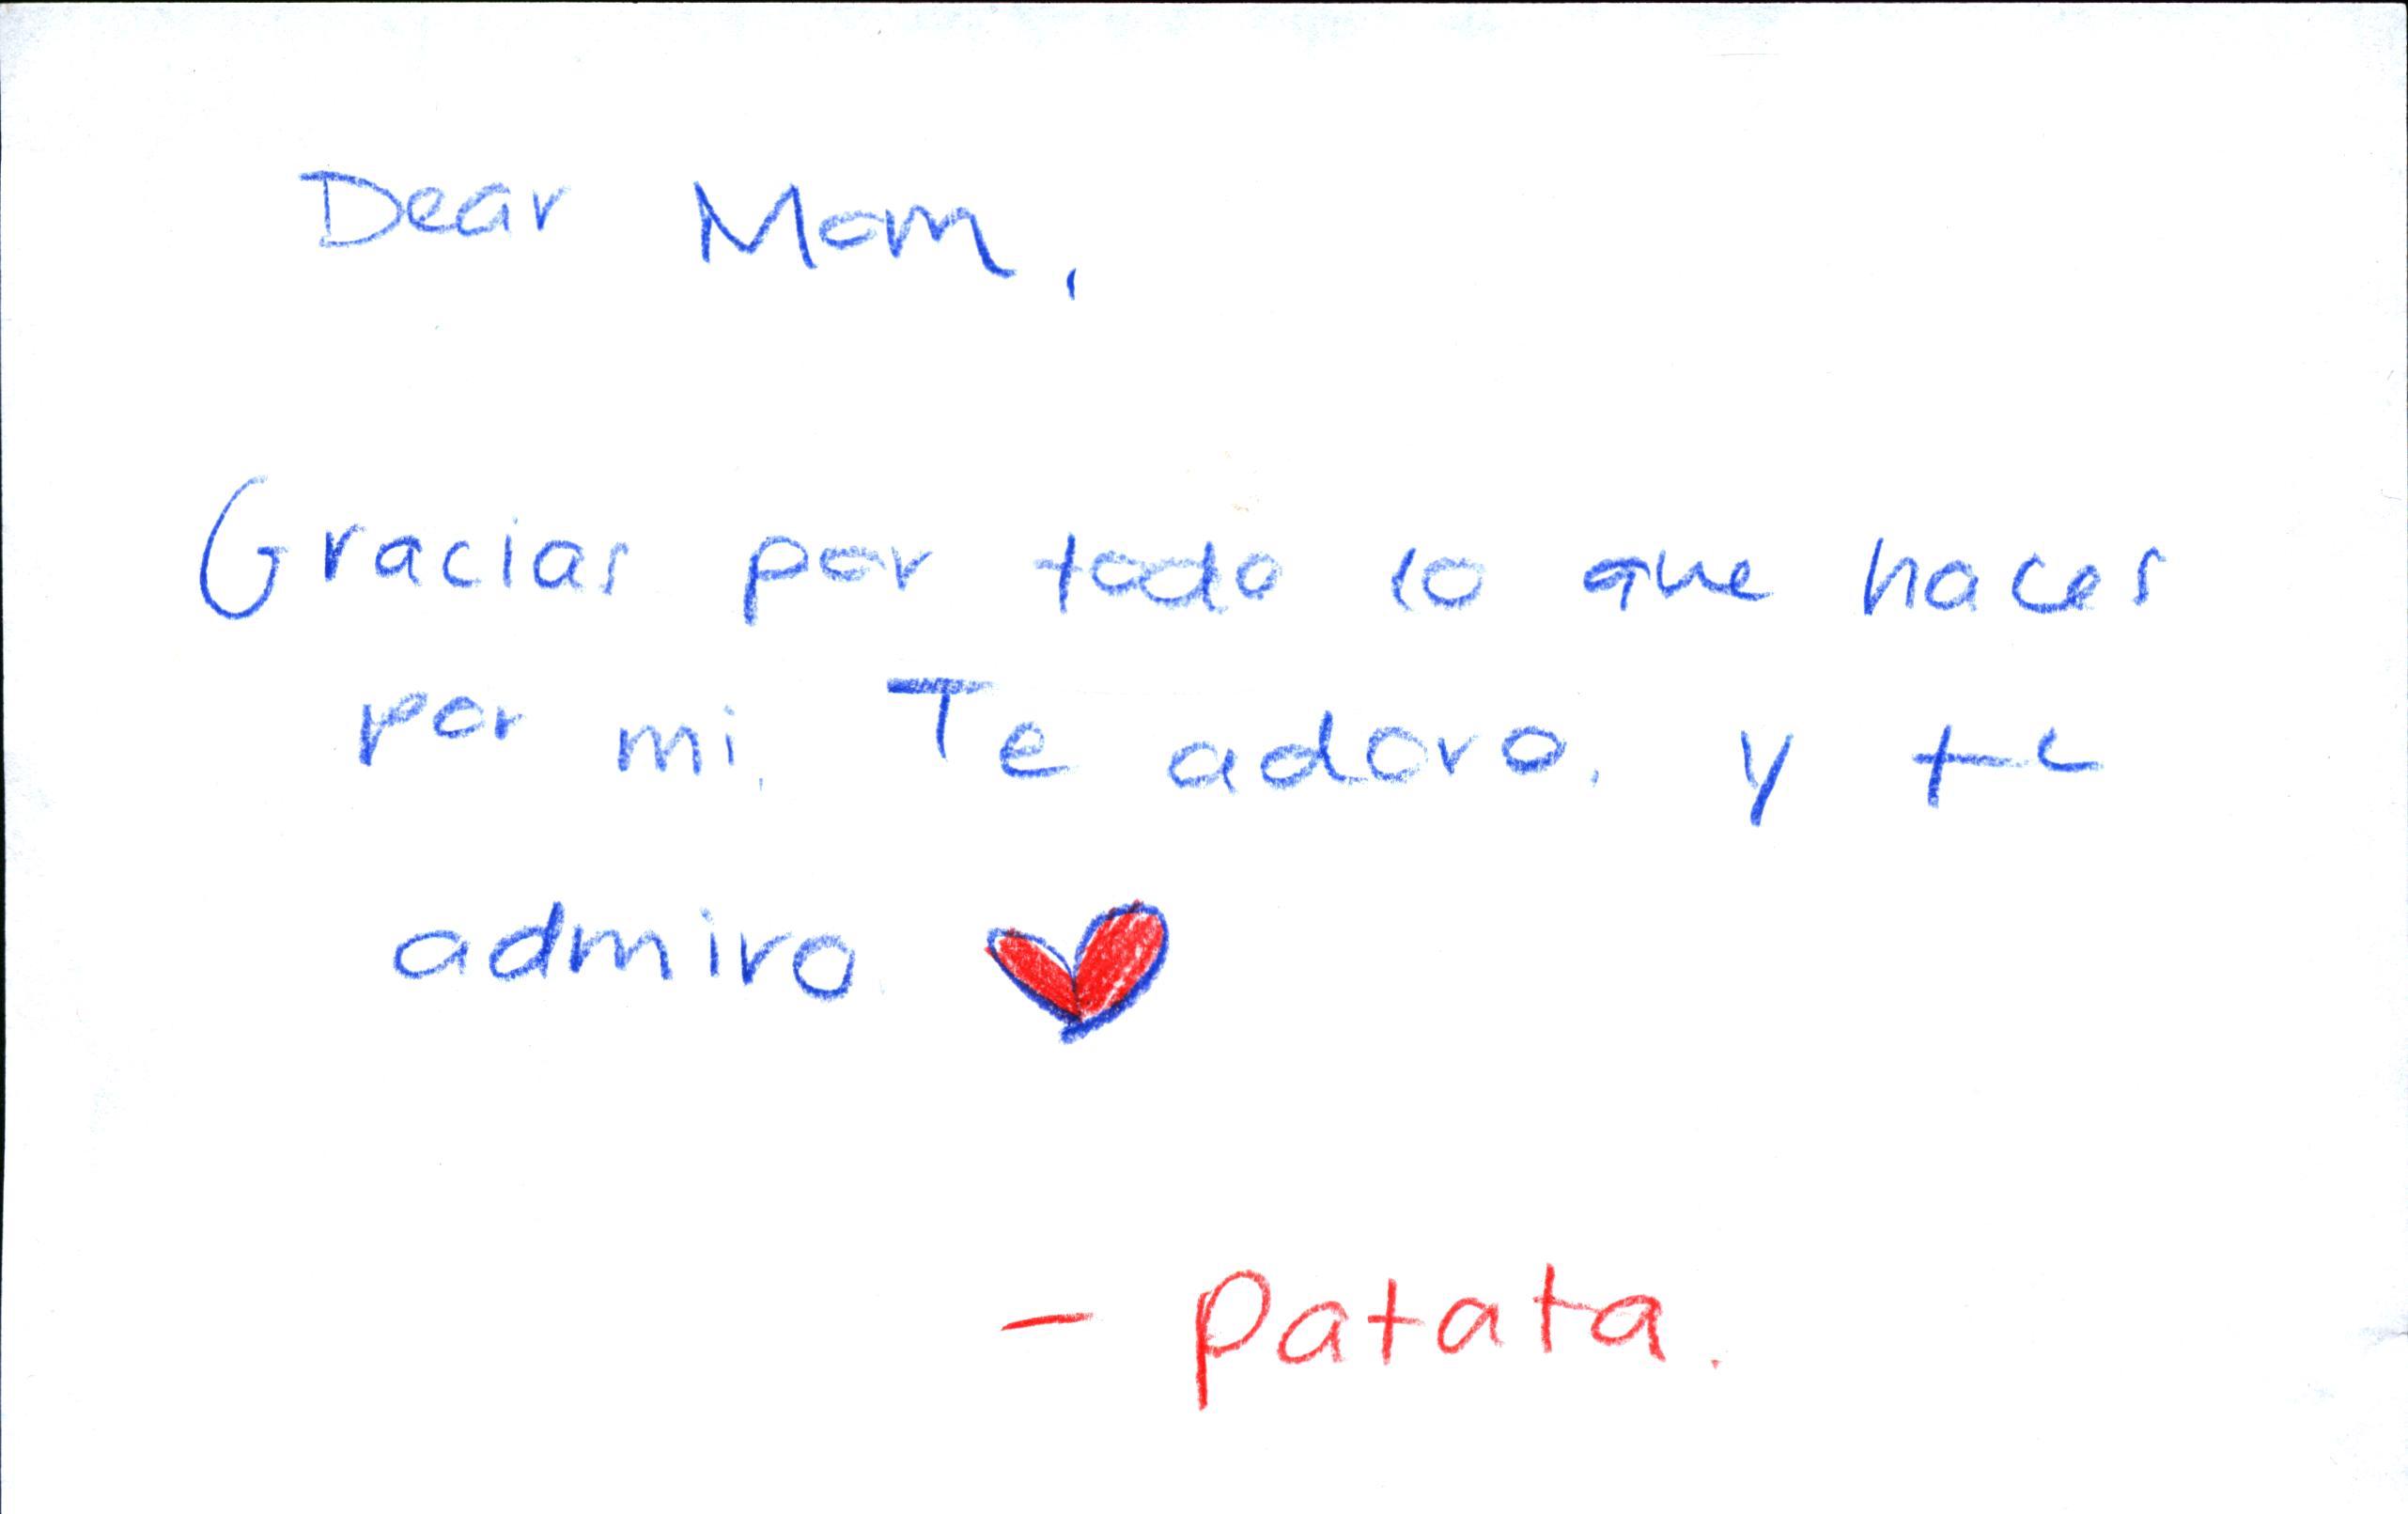 Dear Mom,
Gracias por todo lo que haces
por mi. Te adoro. y te
admiro
- Patata.